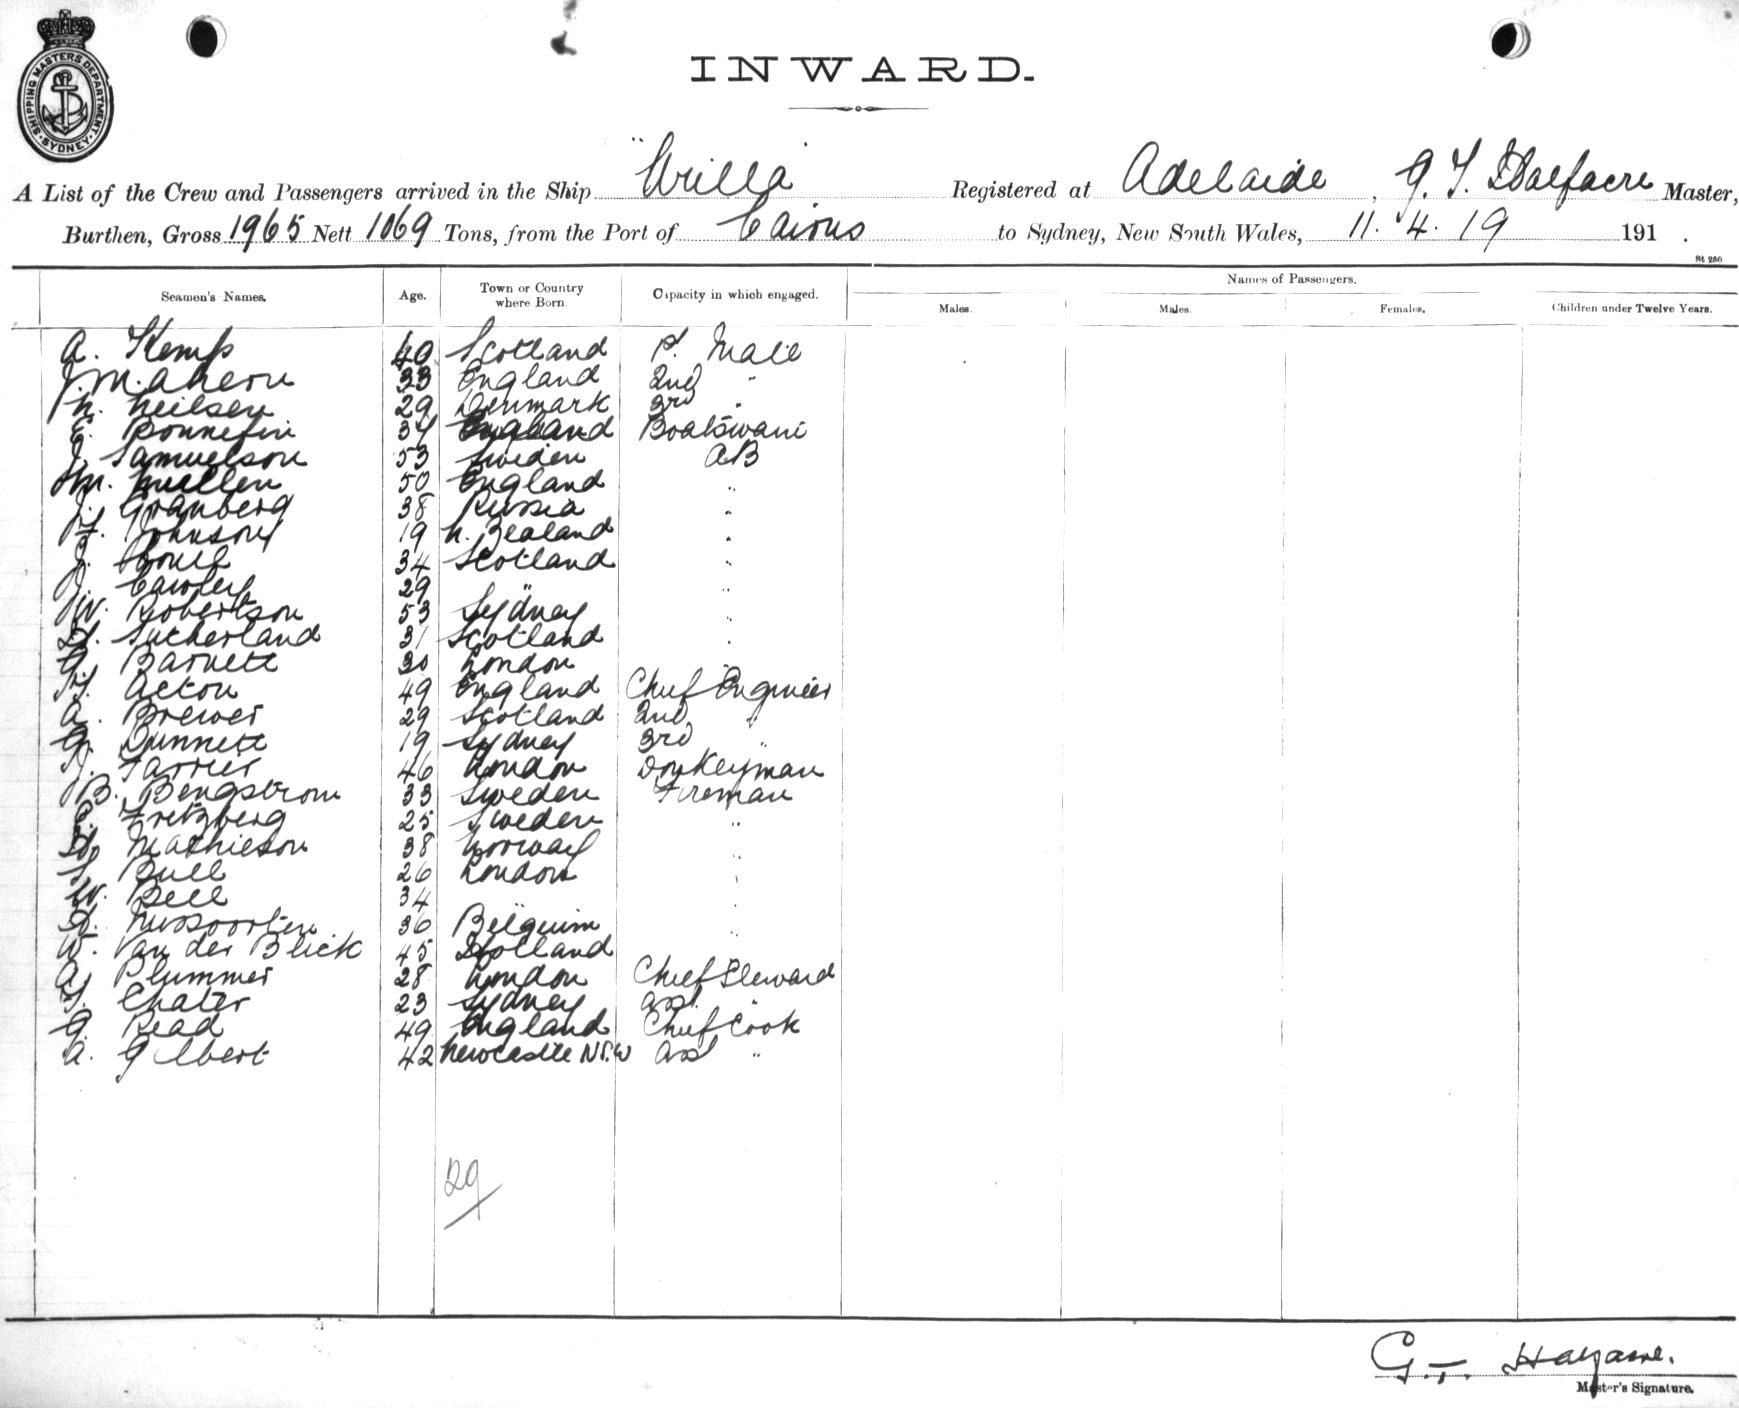 SHIPPING MASTERS DEPARTMENT SYDNEY
INWARD.
A List of the Crew and Passengers arrived in the Ship "Urilla" Registered at Adelaide, G. T. Halfacre Master,
Burthen, Gross 1965 Nett 1069 Tons, from the Port of Cairns to Sydney, New South Wales, 11.4.19 191 .
St 250
Seamen's Names. Age. Town or Country where Born. Capacity in which engaged. Names of Passengers.
Males. Males. Females. Children under Twelve Years.
A. Kemp 40 Scotland 1st. Mate
J. M. Ahern 33 England 2nd "
N. Neilsen 29 Denmark 3rd "
E. Bonnefin 34 England Boatswain
J. Samuelson 53 Sweden AB
M. Mullen 50 England "
J. Granberg 38 Russia "
H. Johnson 19 N. Zealand "
J. 34 Scotland "
J. Cawley 29 " "
W. Robertson 53 Sydney "
D. Sutherland 31 Scotland "
G. Barnett 30 London "
H. Acton 49 England Chief Engineer
A. Brewer 29 Scotland 2nd "
G. Dunnett 19 Sydney 3rd "
J. Farrier 46 London Donkeyman
B. Bengstrom 33 Sweden Fireman
Fretzberg 25 Sweden "
Mathieson 38 Norway "
Bull 26 London "
W. Bell 34 " "
36 Belguim "
W. Van der Blick 45 Holland
A. Plummer 28 London Chief Steward
Chater 23 Sydney Asst. "
G. Read 49 England Chief Cook
A. Gilbert 42 Newcastle NSW Asst "
29
G. T. Halfacre.
Master's Signature.